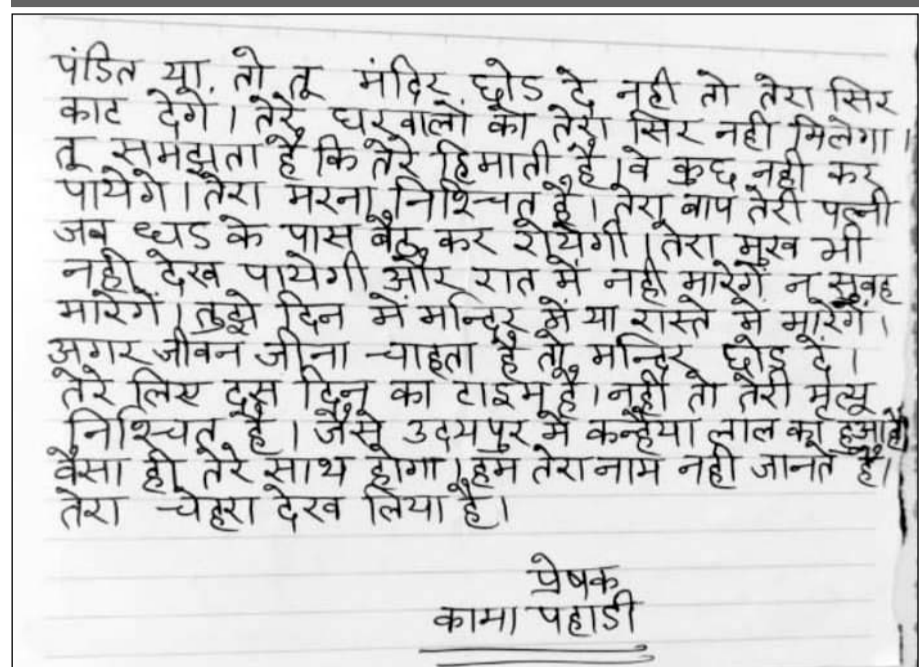 पंडित या तो तू मंदिर छोड दे नही तो तेरा सिर
काट देगे। तेरे घरवालो को तेरा सिर नही मिलेगा।
तू समझता है कि तेरे हिमाती है। वे कुछ नही कर
पायेगे। तेरा मरना निश्चित है। तेरा बाप तेरी पत्नी
जब धड के पास बैठ कर रोयेगी। तेरा मुख भी
नही देख पायेगी और रात में नही मारेगें न सुबह
मारेगें। तुझे दिन में मन्दिर में या रास्ते में मारेगें।
अगर जीवन जीना चाहता है तो मन्दिर छोड दें।
तेरे लिए दस दिन का टाइम है। नही तो तेरी मृत्यू
निश्चित है। जैसे उदयपुर में कन्हैया लाल का हुआ है
वैसा ही तेरे साथ होगा। हम तेरा नाम नही जानते है।
तेरा चेहरा देख लिया है।
प्रेषक
कामा पहाडी